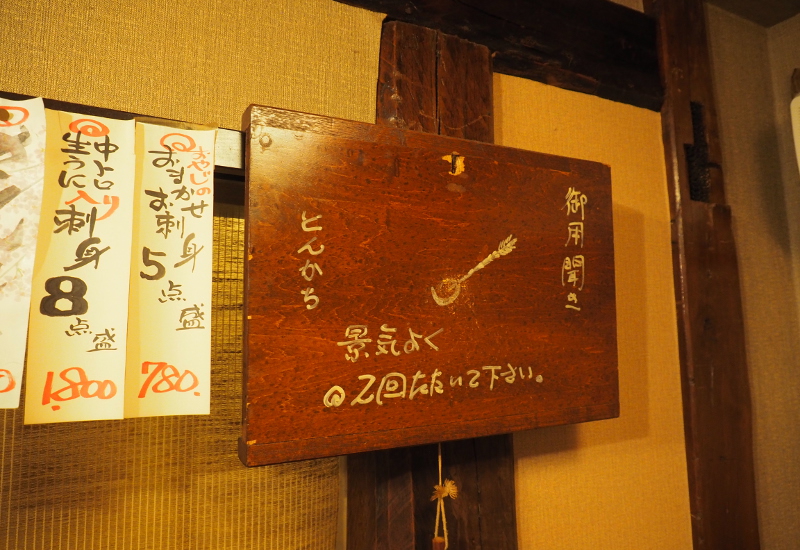 中トロ
生うに入り
刺身
8点盛
1.800
おやじの
おまかせ
お刺身
5点盛
780.
御用聞き
とんかち
景気よく
2回たたいて下さい。